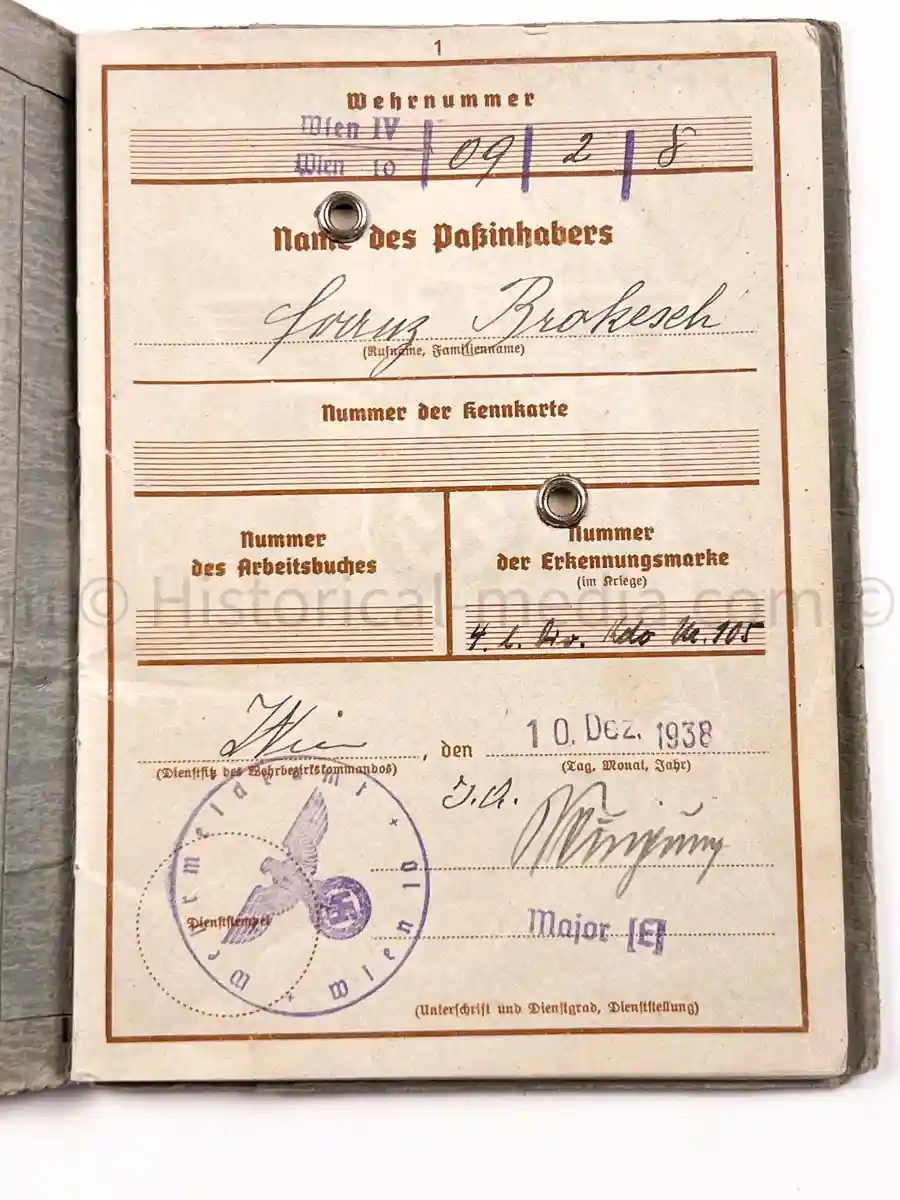 1
Wehrnummer
Wien IV
Wien 10 | 09 | 2 | 8
Name des Paßinhabers
Franz Brokesch
(Rufname, Familienname)
Nummer der Kennkarte
Nummer
des Arbeitsbuches
Nummer
der Erkennungsmarke
(im Kriege)
© Historical-media.com ©
4. l. Div. Kdo Nr. 105
Wien, den 10. Dez. 1938
(Dienstsitz des Wehrbezirkskommandos)
(Tag, Monat, Jahr)
J.A.
Wehrmeldeamt * Wien 10 *
Dienststempel
Major [E]
(Unterschrift und Dienstgrad, Dienststellung)